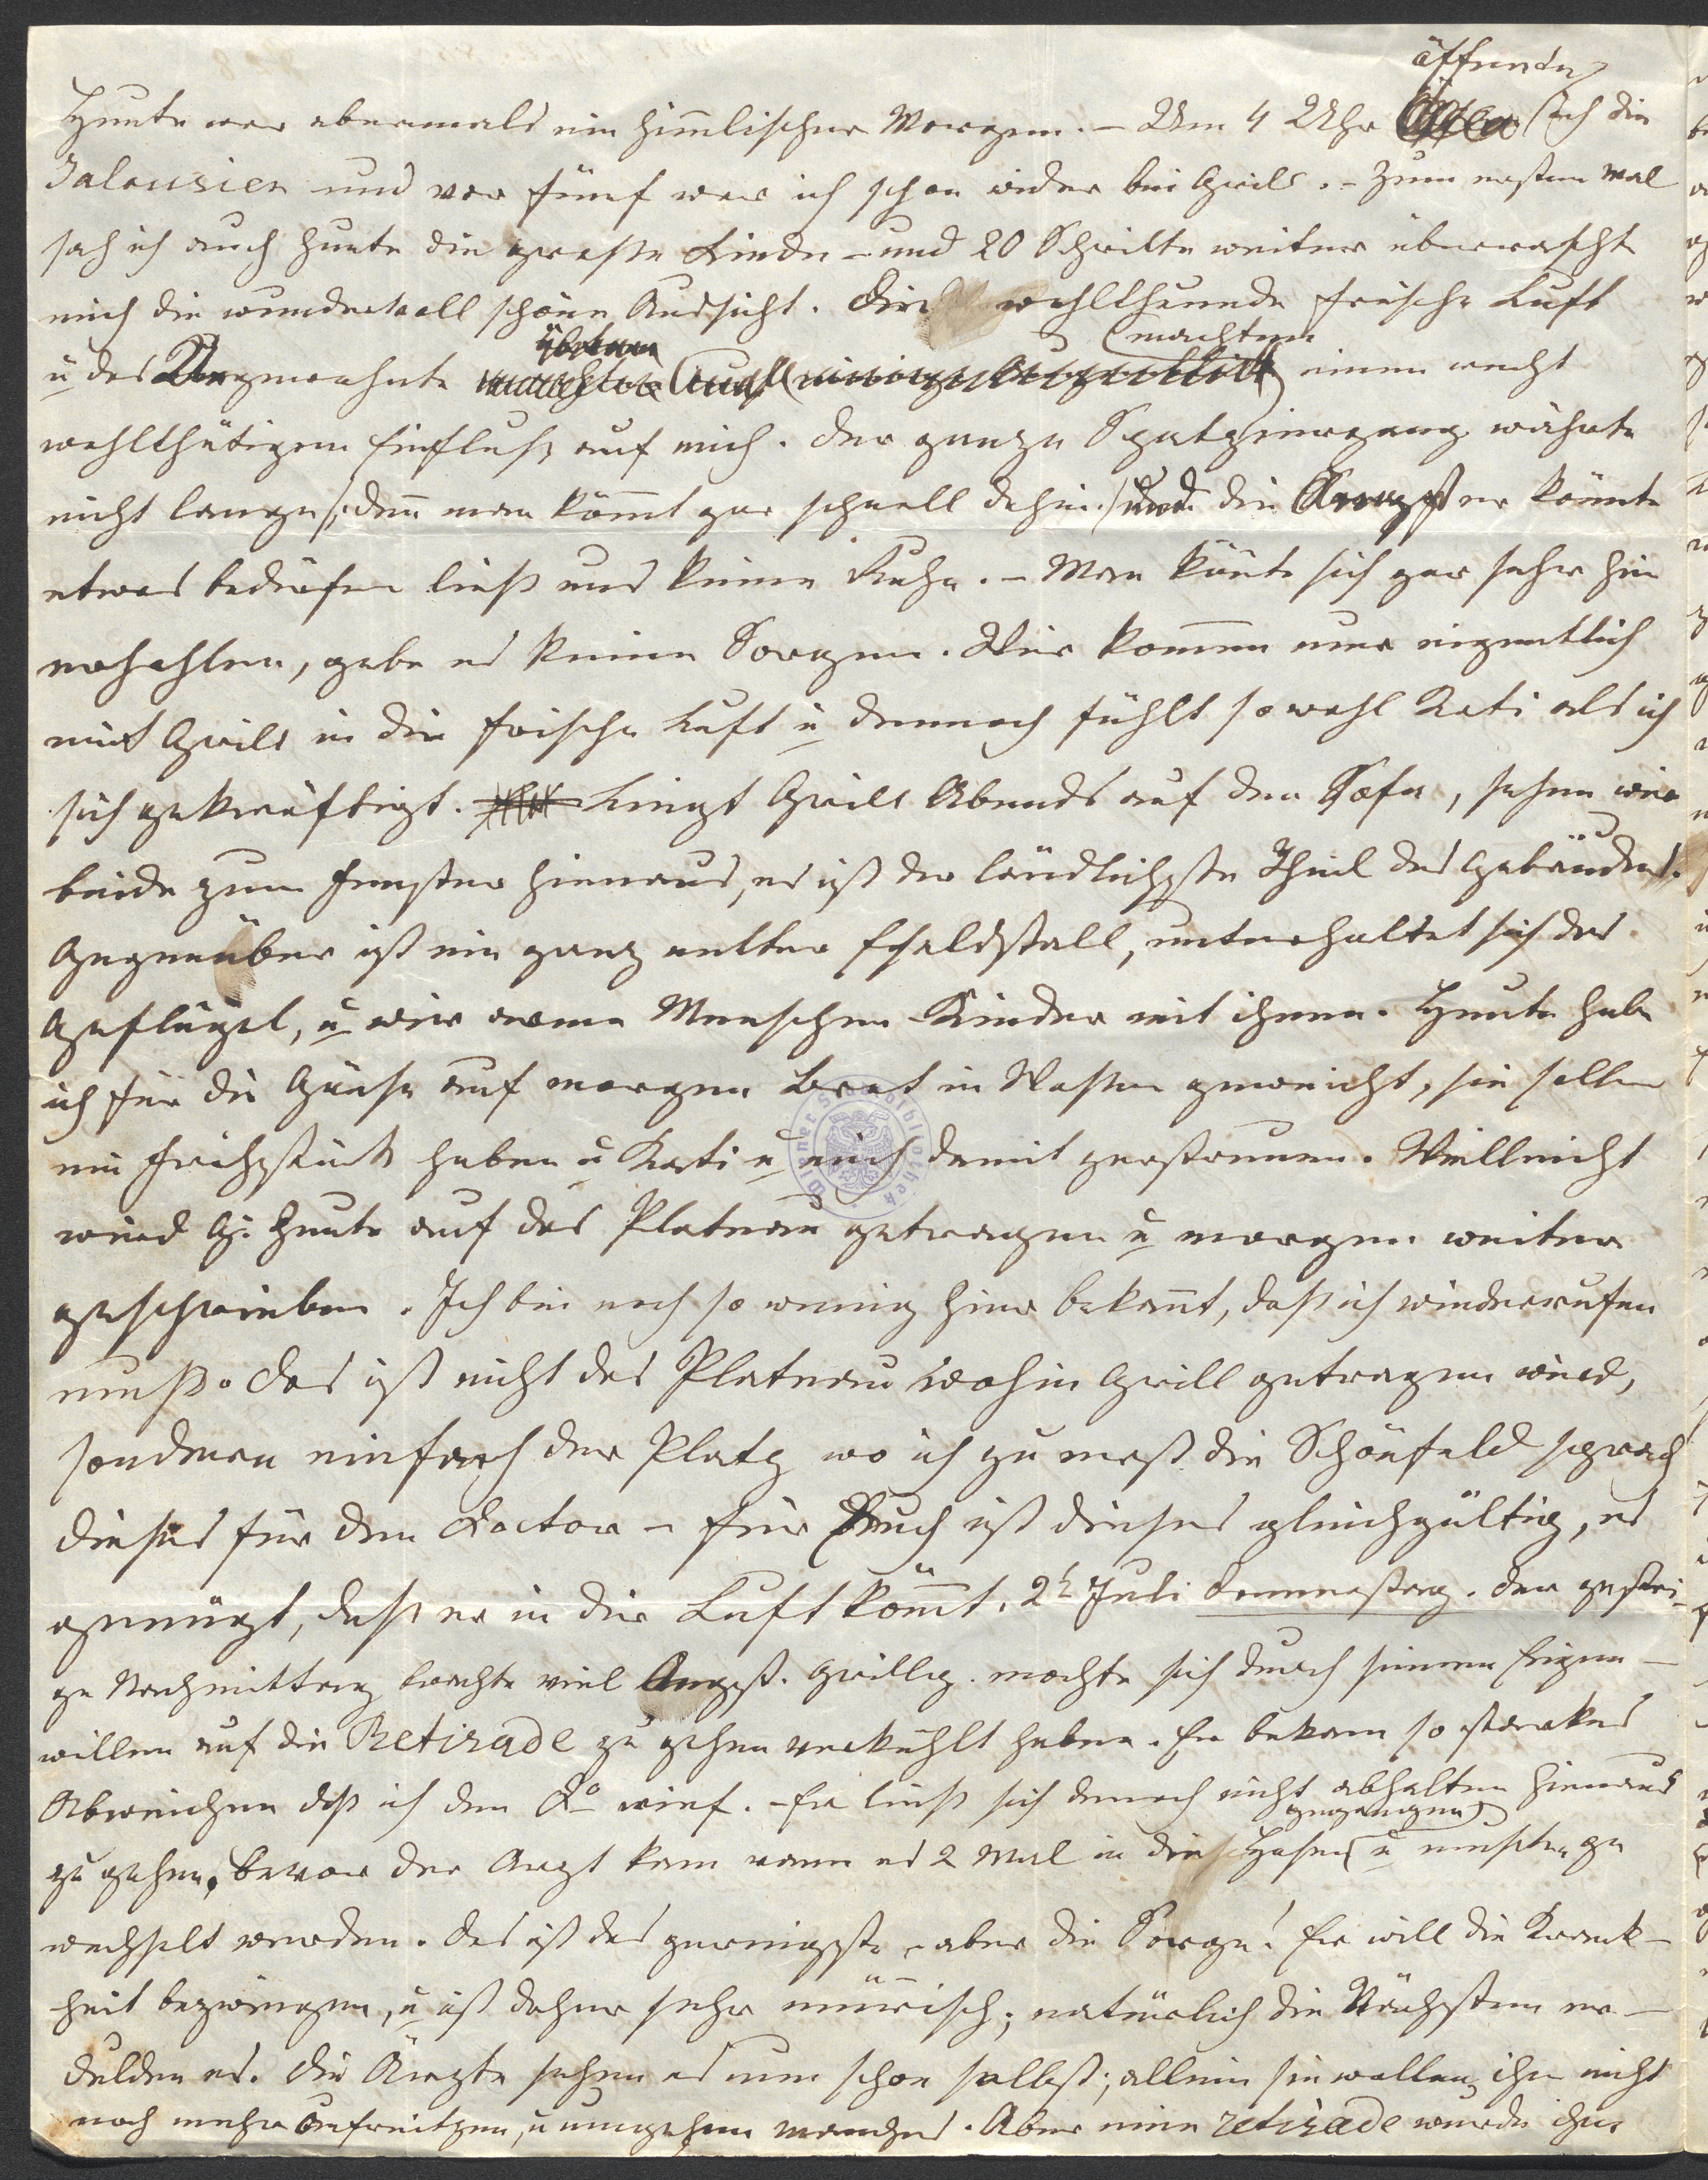 öffnete
Heute war abermals ein himlischer Morgen. – Um 4 Uhr ich die
Jalousien und vor fünf war ich schon wider bei Grill. – Zum ersten Mal
sah ich auch heute die große Linde – und 20 Schritte weiter überrascht
mich die wundervoll schöne Aussicht. Die wohlthuende frische Luft
machten
u das Ungewohnte einen recht
wohlthätigen Einfluß auf mich. Der ganze Spatziergang währte
nicht lange /: denn man kömt gar schnell dahin :/ und die Angst er könnte
etwas bedürfen ließ uns keine Ruhe. – Man könte sich gar sehr hier
erhohlen, gebe es keine Sorgen. Wir kommen nur eigentlich
mit Grill in die frische Luft u dennoch fühlt sowohl Kati als ich
sich gekräftigt. Liegt Grill Abends auf den Sofa, sehen wir
beide zum Fenster hienaus, es ist der ländlichste Theil des Gebäudes.
Gegenüber ist ein ganz netter Stall, unterhaltet sich das
Geflügel, u wir armen Menschen Kinder mit ihnen. Heute habe
ich für die Gänse auf morgen Brot in Wasser geweicht, sie sollen
ein Frühstück haben u Kati u mich damit zerstreuen. Vielleicht
wird G. heute auf das Plateau getragen u morgen weiter
geschrieben. Ich bin noch so wenig hier bekannt, daß ich wiederrufen
muß. Das ist nicht das Plateau wohin Grill getragen wird,
sondern einfach der Platz wo ich zu erst die Schönfeld sprach
dieses für den Doctor – für Euch ist dieses gleichgültig, es
genügt, daß er in die Luft kömt. 2t Juli Donnerstag. Der gestri-
ge Nachmittag brachte viel Angst. Grillp. mochte sich durch seinen Eigen-
willen auf die Retirade zu gehen verkühlt haben. Er bekam so starkes
Abweichen daß ich den Dr rief. – Er ließ sich denoch nicht abhalten hienaus
gegangen
zu gehen, bevor der Arzt kam wares 2 Mal in die Hosen u mußten ge
wechselt werden. Das ist das geringste – aber die Sorge! Er will die Krank-
heit bezwingen, u ist daher sehr mürrisch; natürlich die Nächsten er-
dulden es. Die Ärzte sehen es nun schon selbst; allein sie wollen ihn nicht
noch mehr aufreitzen, u umgehen manches. Aber eine retirade wurde ihm
Wiener Stadtbibliothek